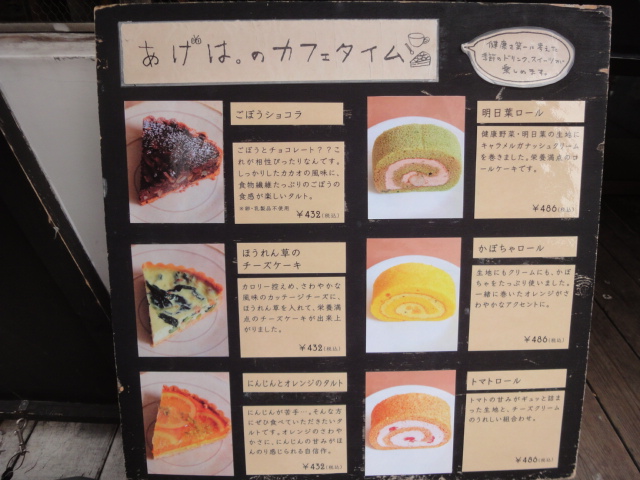 あげは。のカフェタイム
健康を第一に考えた
季節のドリンク、スイーツが
楽しめます。
ごぼうショコラ
ごぼうとチョコレート??こ
れが相性ぴったりなんです。
しっかりしたカカオの風味に、
食物繊維たっぷりのごぼうの
食感が楽しいタルト。
※卵・乳製品不使用
¥432(税込)
明日葉ロール
健康野菜・明日葉の生地に
キャラメルガナッシュクリーム
を巻きました。栄養満点のロ
ールケーキです。
¥486(税込)
ほうれん草の
チーズケーキ
カロリー控えめ、さわやかな
風味のカッテージチーズに、
ほうれん草を入れて、栄養満
点のチーズケーキが出来上
がりました。
¥432(税込)
かぼちゃロール
生地にもクリームにも、かぼ
ちゃをたっぷり使いました。
一緒に巻いたオレンジがさ
わやかなアクセントに。
¥486(税込)
にんじんとオレンジのタルト
にんじんが苦手…。そんな方
にぜひ食べていただきたいタ
ルトです。オレンジのさわや
かさに、にんじんの甘みがほ
んのり感じられる自信作。
¥432(税込)
トマトロール
トマトの甘みがギュッと詰ま
った生地と、チーズクリーム
のうれしい組合わせ。
¥486(税込)